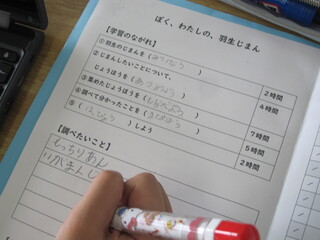 ぼく、わたしの、羽生じまん
【学習のながれ】
①羽生のじまんを(みつけよう) 2時間
②じまんしたいことについて、
じょうほうを(あつめよう) 4時間
③集めたじょうほうを( ) 7時間
④調べて分かったことを( ) 5時間
⑤(はっぴょう)しよう 2時間
【調べたいこと】
もっちりあん
いがまんじ